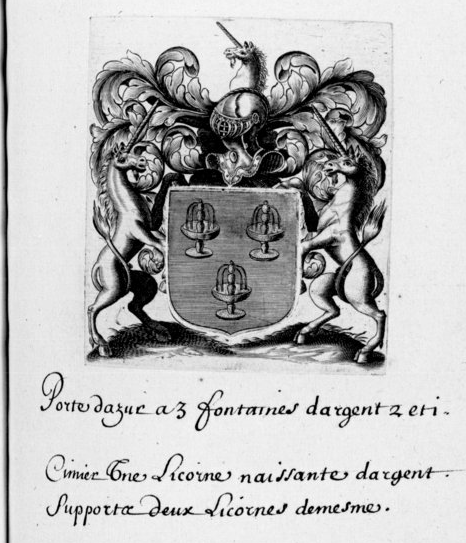 Porte dazur a 3 fontaines dargent 2 et i.
Cimier Vne Licorne naissante dargent.
Supporta deux Licornes demesme.